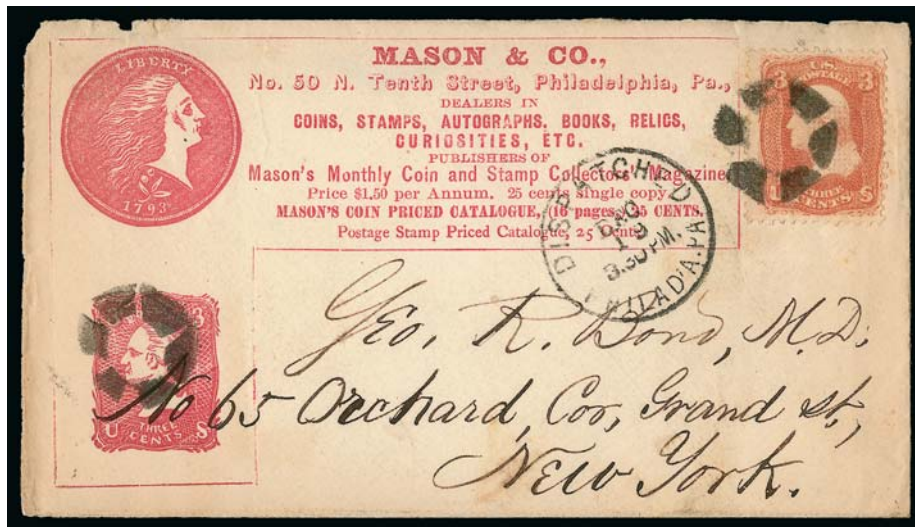 LIBERTY
1793
MASON & CO.,
No. 50 N. Tenth Street, Philadelphia, Pa.,
DEALERS IN
COINS, STAMPS, AUTOGRAPHS. BOOKS, RELICS,
CURIOSITIES, ETC.
PUBLISHERS OF
Mason's Monthly Coin and Stamp Collectors' Magazine
Price $1.50 per Annum. 25 cents single copy.
MASON'S COIN PRICED CATALOGUE, (16 pages,) 25 CENTS.
Postage Stamp Priced Catalogue, 25 Cents.
3 U.S. 3
POSTAGE
U THREE S
CENTS
DISPATCHED
19
3.30 PM.
PHILAD'A. PA.
3
U THREE S
CENTS
Geo. R. Bond, M.D.
No 65 Orchard, Cor, Grand st,
New York.